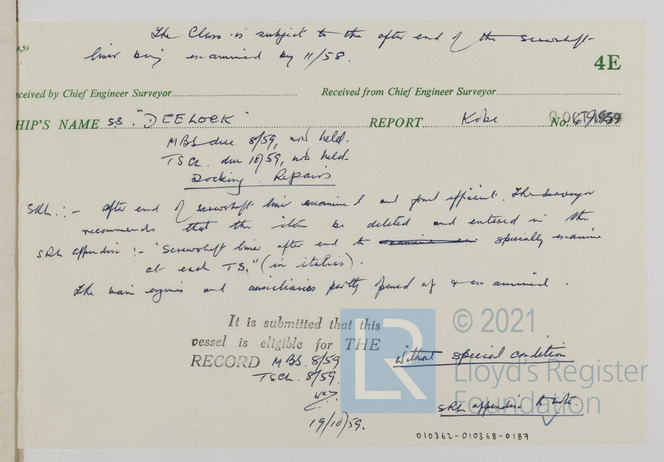 The Class is subject to the after end of the screwshaft
liner being examined by 11/58.
4E
eceived by Chief Engineer Surveyor
Received from Chief Engineer Surveyor
HIP'S NAME SS. "DEELOCK" REPORT Kobe No.
MBS due 8/59, now held.
TSCL due 10/59, now held.
Docking. Repairs
SRL :- After end of screwshaft liner examined and found efficient. The Surveyor
recommends that this item be deleted and entered in the
SRL appendix :- "Screwshaft liner after end to specially examine
at each TS." (in italics).
The main engines and auxiliaries partly opened up & examined.
It is submitted that this
vessel is eligible for THE
RECORD MBS. 8/59
TSCL. 8/59.
without special condition
19/10/59.
SRL appendix to note.
010362-010368-0187
© 2021
LR
Lloyd's Register
Foundation